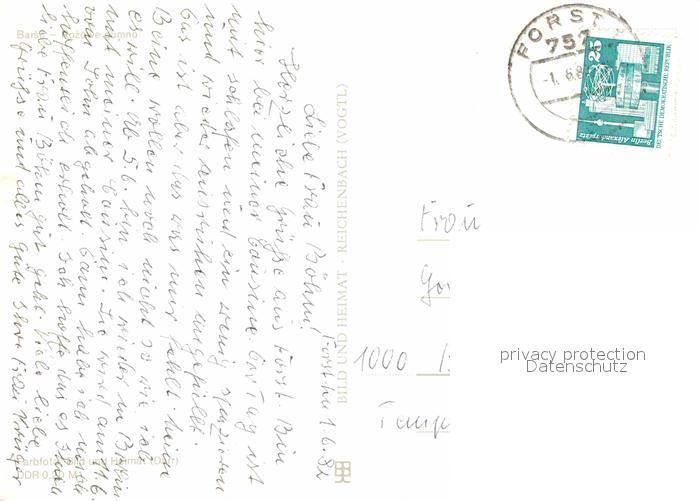 Forst, den 1.6.82
Liebe Frau Böhm!
Herzliche Grüße aus Forst. Bin
hier bei meiner Cousine. Der Tag ist
mit schlafen und ein wenig spazieren
und wieder ausruhen ausgefüllt.
Das ist aber das was mir fehlt. Meine
Beine wollen noch nicht so wie ich
es will. Ab 5.6. bin ich wieder in Berlin
mit meiner Cousine. Sie wird am 11.6.
vom Sohn abgeholt. Dann habe ich mich
hoffentlich erholt. Ich hoffe das es Ihnen
liebe Frau Böhm gut geht. Viele liebe
Grüße und alles Gute Ihre Frau Krüger
Barść - Rožowe gumno
Farbfoto: Bild und Heimat (Darr)
DDR 0,20 M
BILD UND HEIMAT · REICHENBACH (VOGTL)
FORST
757
-1. 6.8
25
DEUTSCHE DEMOKRATISCHE REPUBLIK
Berlin, Alexanderplatz
Frau
1000
privacy protection
Datenschutz